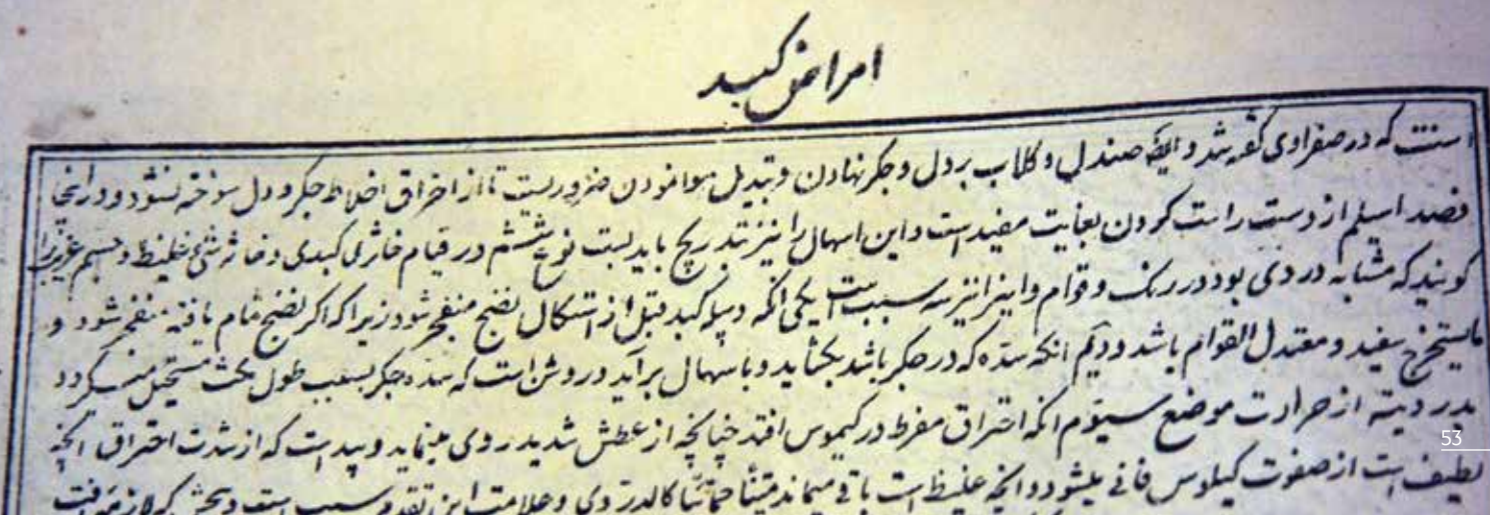 امراض کبد
است که در صفراوی گفته شد و ایضا صندل و کلاب بر دل و جکر نهادن و تبدیل هوا نمودن ضروریست تا از احراق اخلاط جکر و دل سوخته نشود و در اینجا
فصد اسیلم از دست راست کردن بغایت مفید است و این اسهال را نیز بتدریج باید بست نوع ششم در قیام خاثری کبدی و خاثر شئ غلیظ و جسم غریرا
کویند که مشابه دردی بود در رنک و قوام و اینرا نیز سه سبب است یکی انکه دبیله کبد قبل از استکمال نضج منفجر شود زیرا که اکر نضج تمام یافته منفجر شود و
مایستخرج سفید و معتدل القوام باشد ودیم انکه سده که در جکر باشد بکشاید و باسهال برآید و روشن است که سده جکر بسبب طول مکث مستحیل میکردد
بدردیته از حرارت موضع سیوم انکه احتراق مفرط در کیموس افتد چنانچه از عطش شدید روی مینماید و پیداست که از شدت احتراق انچه
لطیف است از صفوت کیلوس فانی میشود و انچه غلیظ است باقی میماند منتنا کالدردی و علامت این تقدم سبب است و بحث که لازم
53